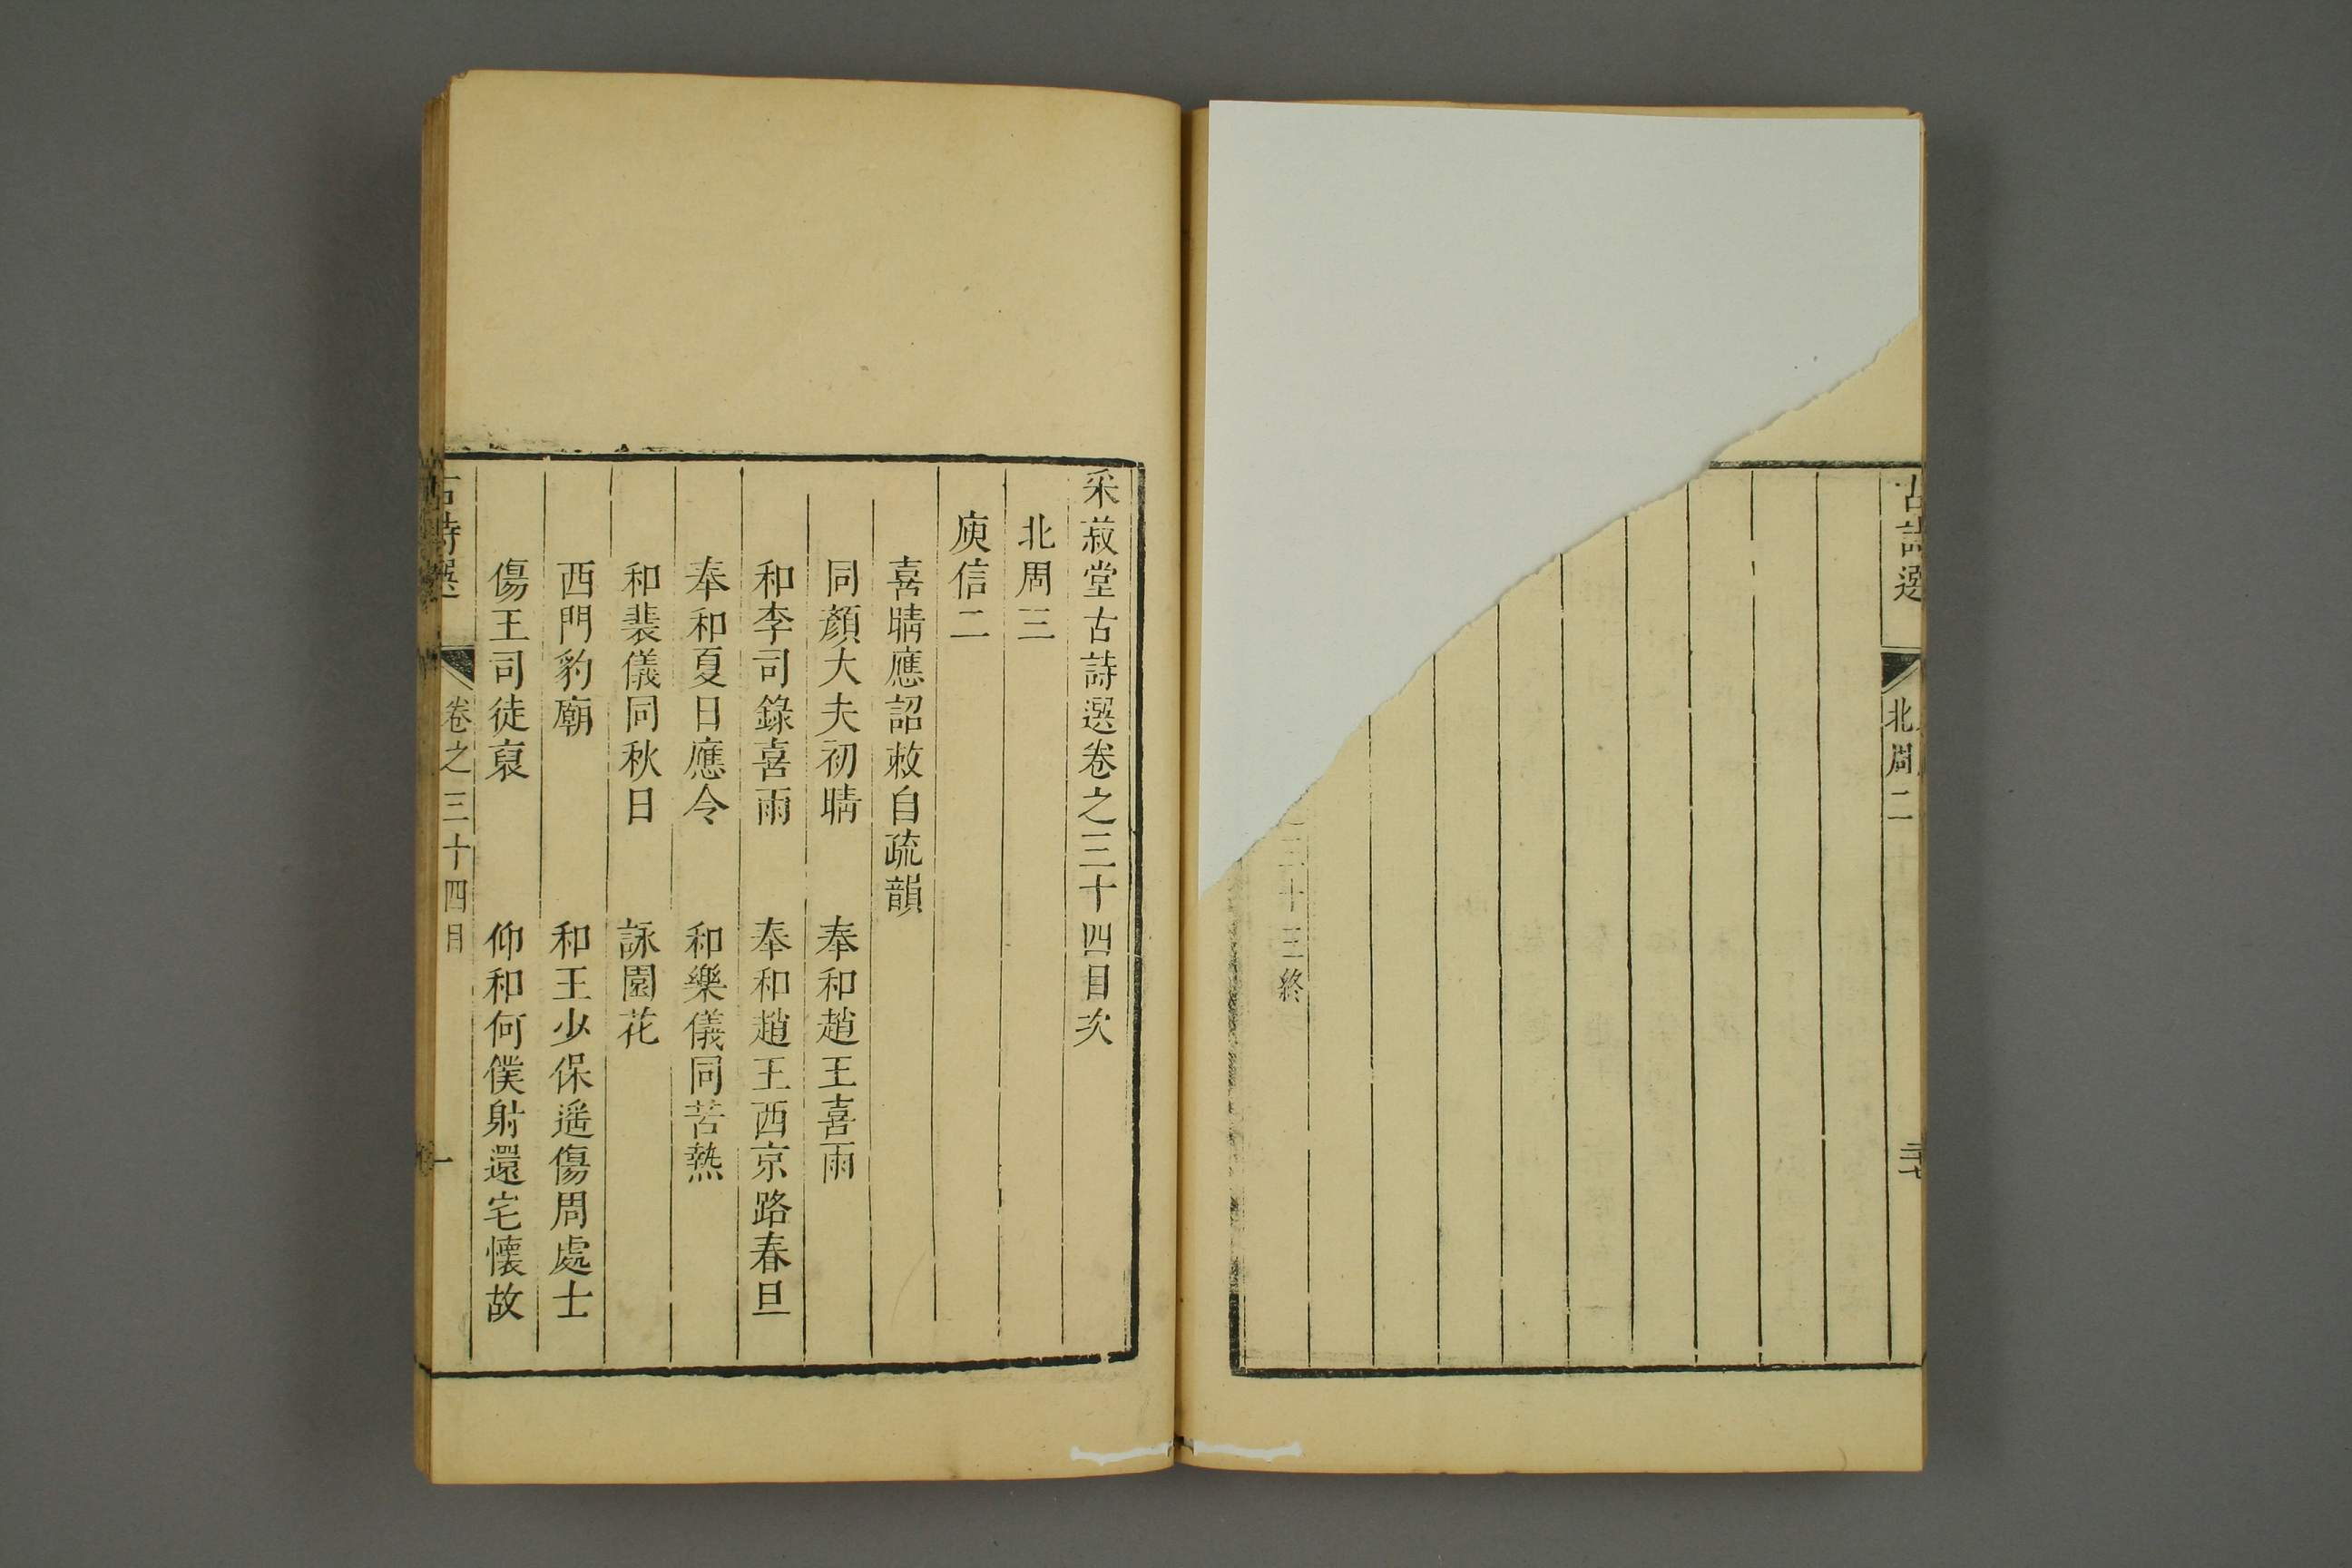 古詩選
北周二
三十三終
采菽堂古詩選卷之三十四目次
北周三
庾信二
喜晴應詔敕自疏韻
同顏大夫初晴
奉和趙王喜雨
和李司錄喜雨
奉和趙王西京路春旦
奉和夏日應令
和樂儀同苦熱
和裴儀同秋日
詠園花
西門豹廟
和王少保遥傷周處士
傷王司徒裒
仰和何僕射還宅懷故
古詩選
卷之三十四目
一